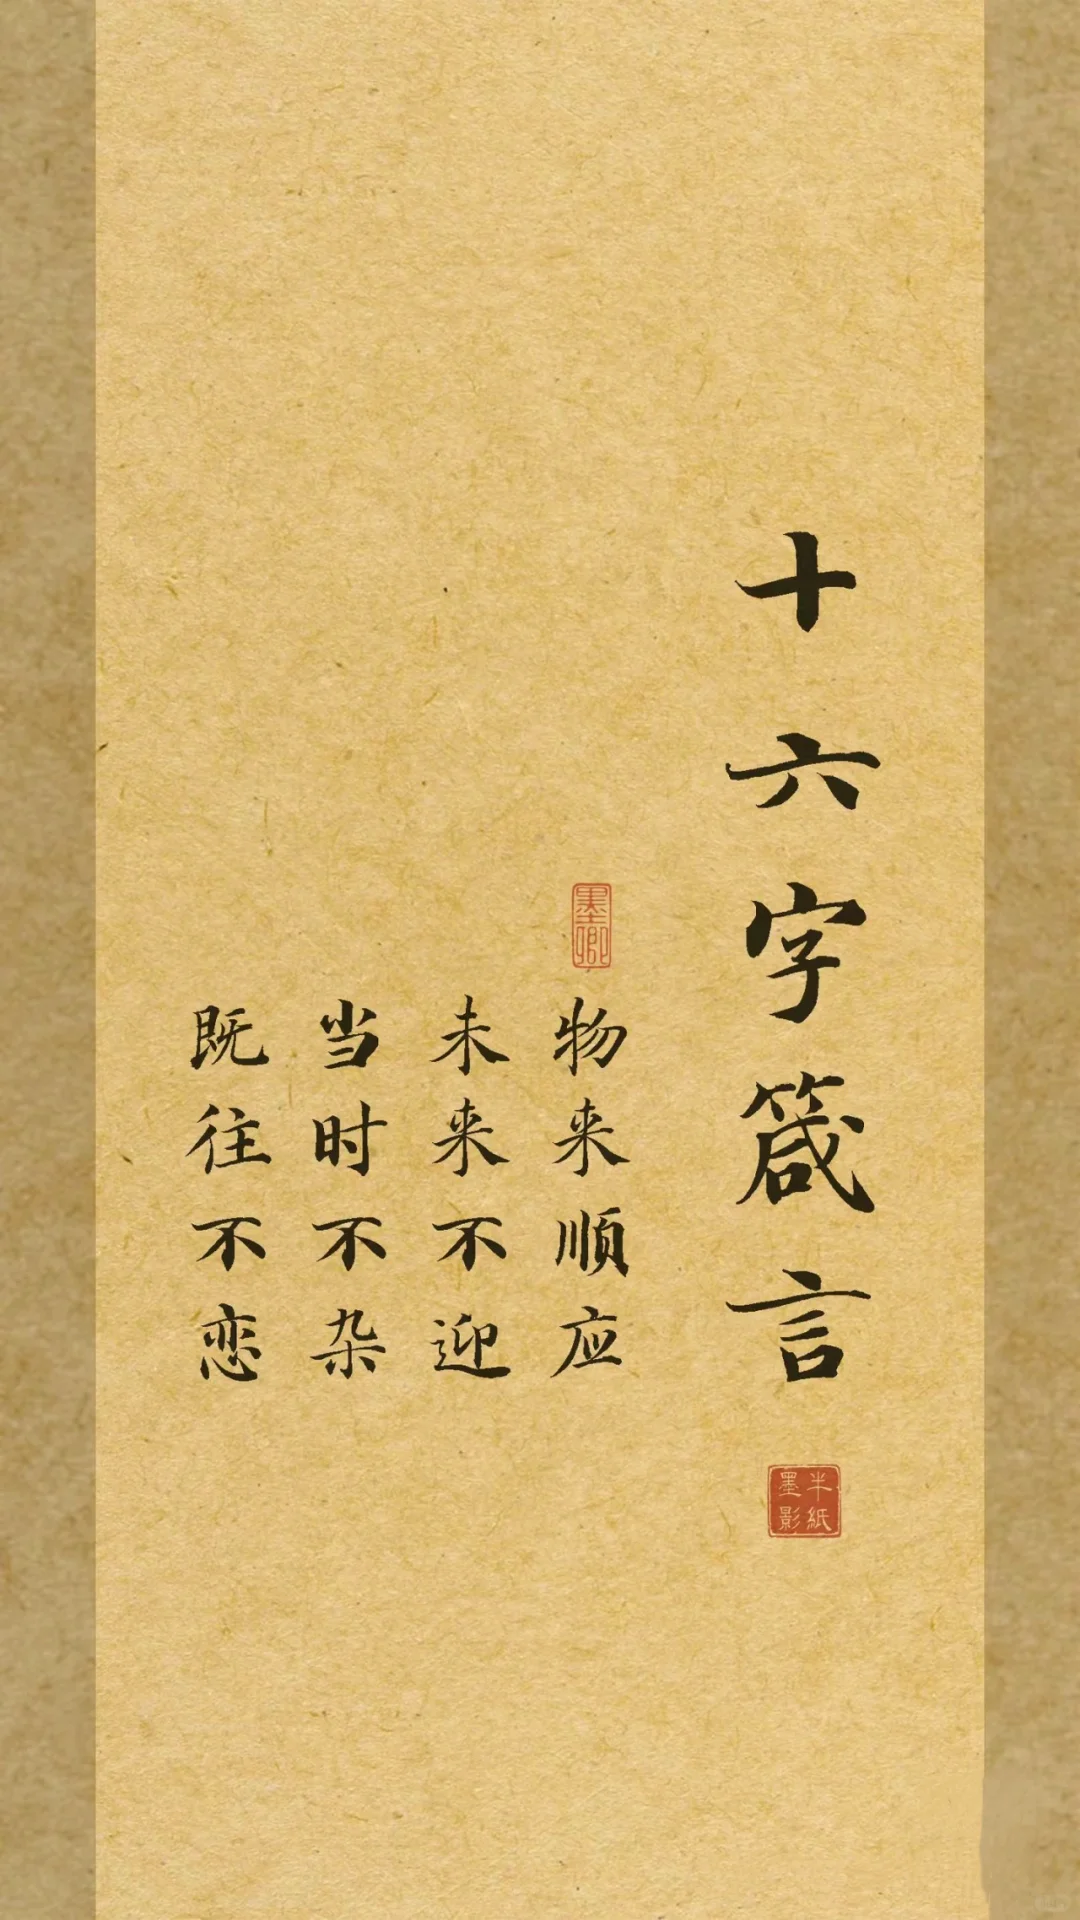 十六字箴言
半紙墨影
墨卿
物来顺应
未来不迎
当时不杂
既往不恋